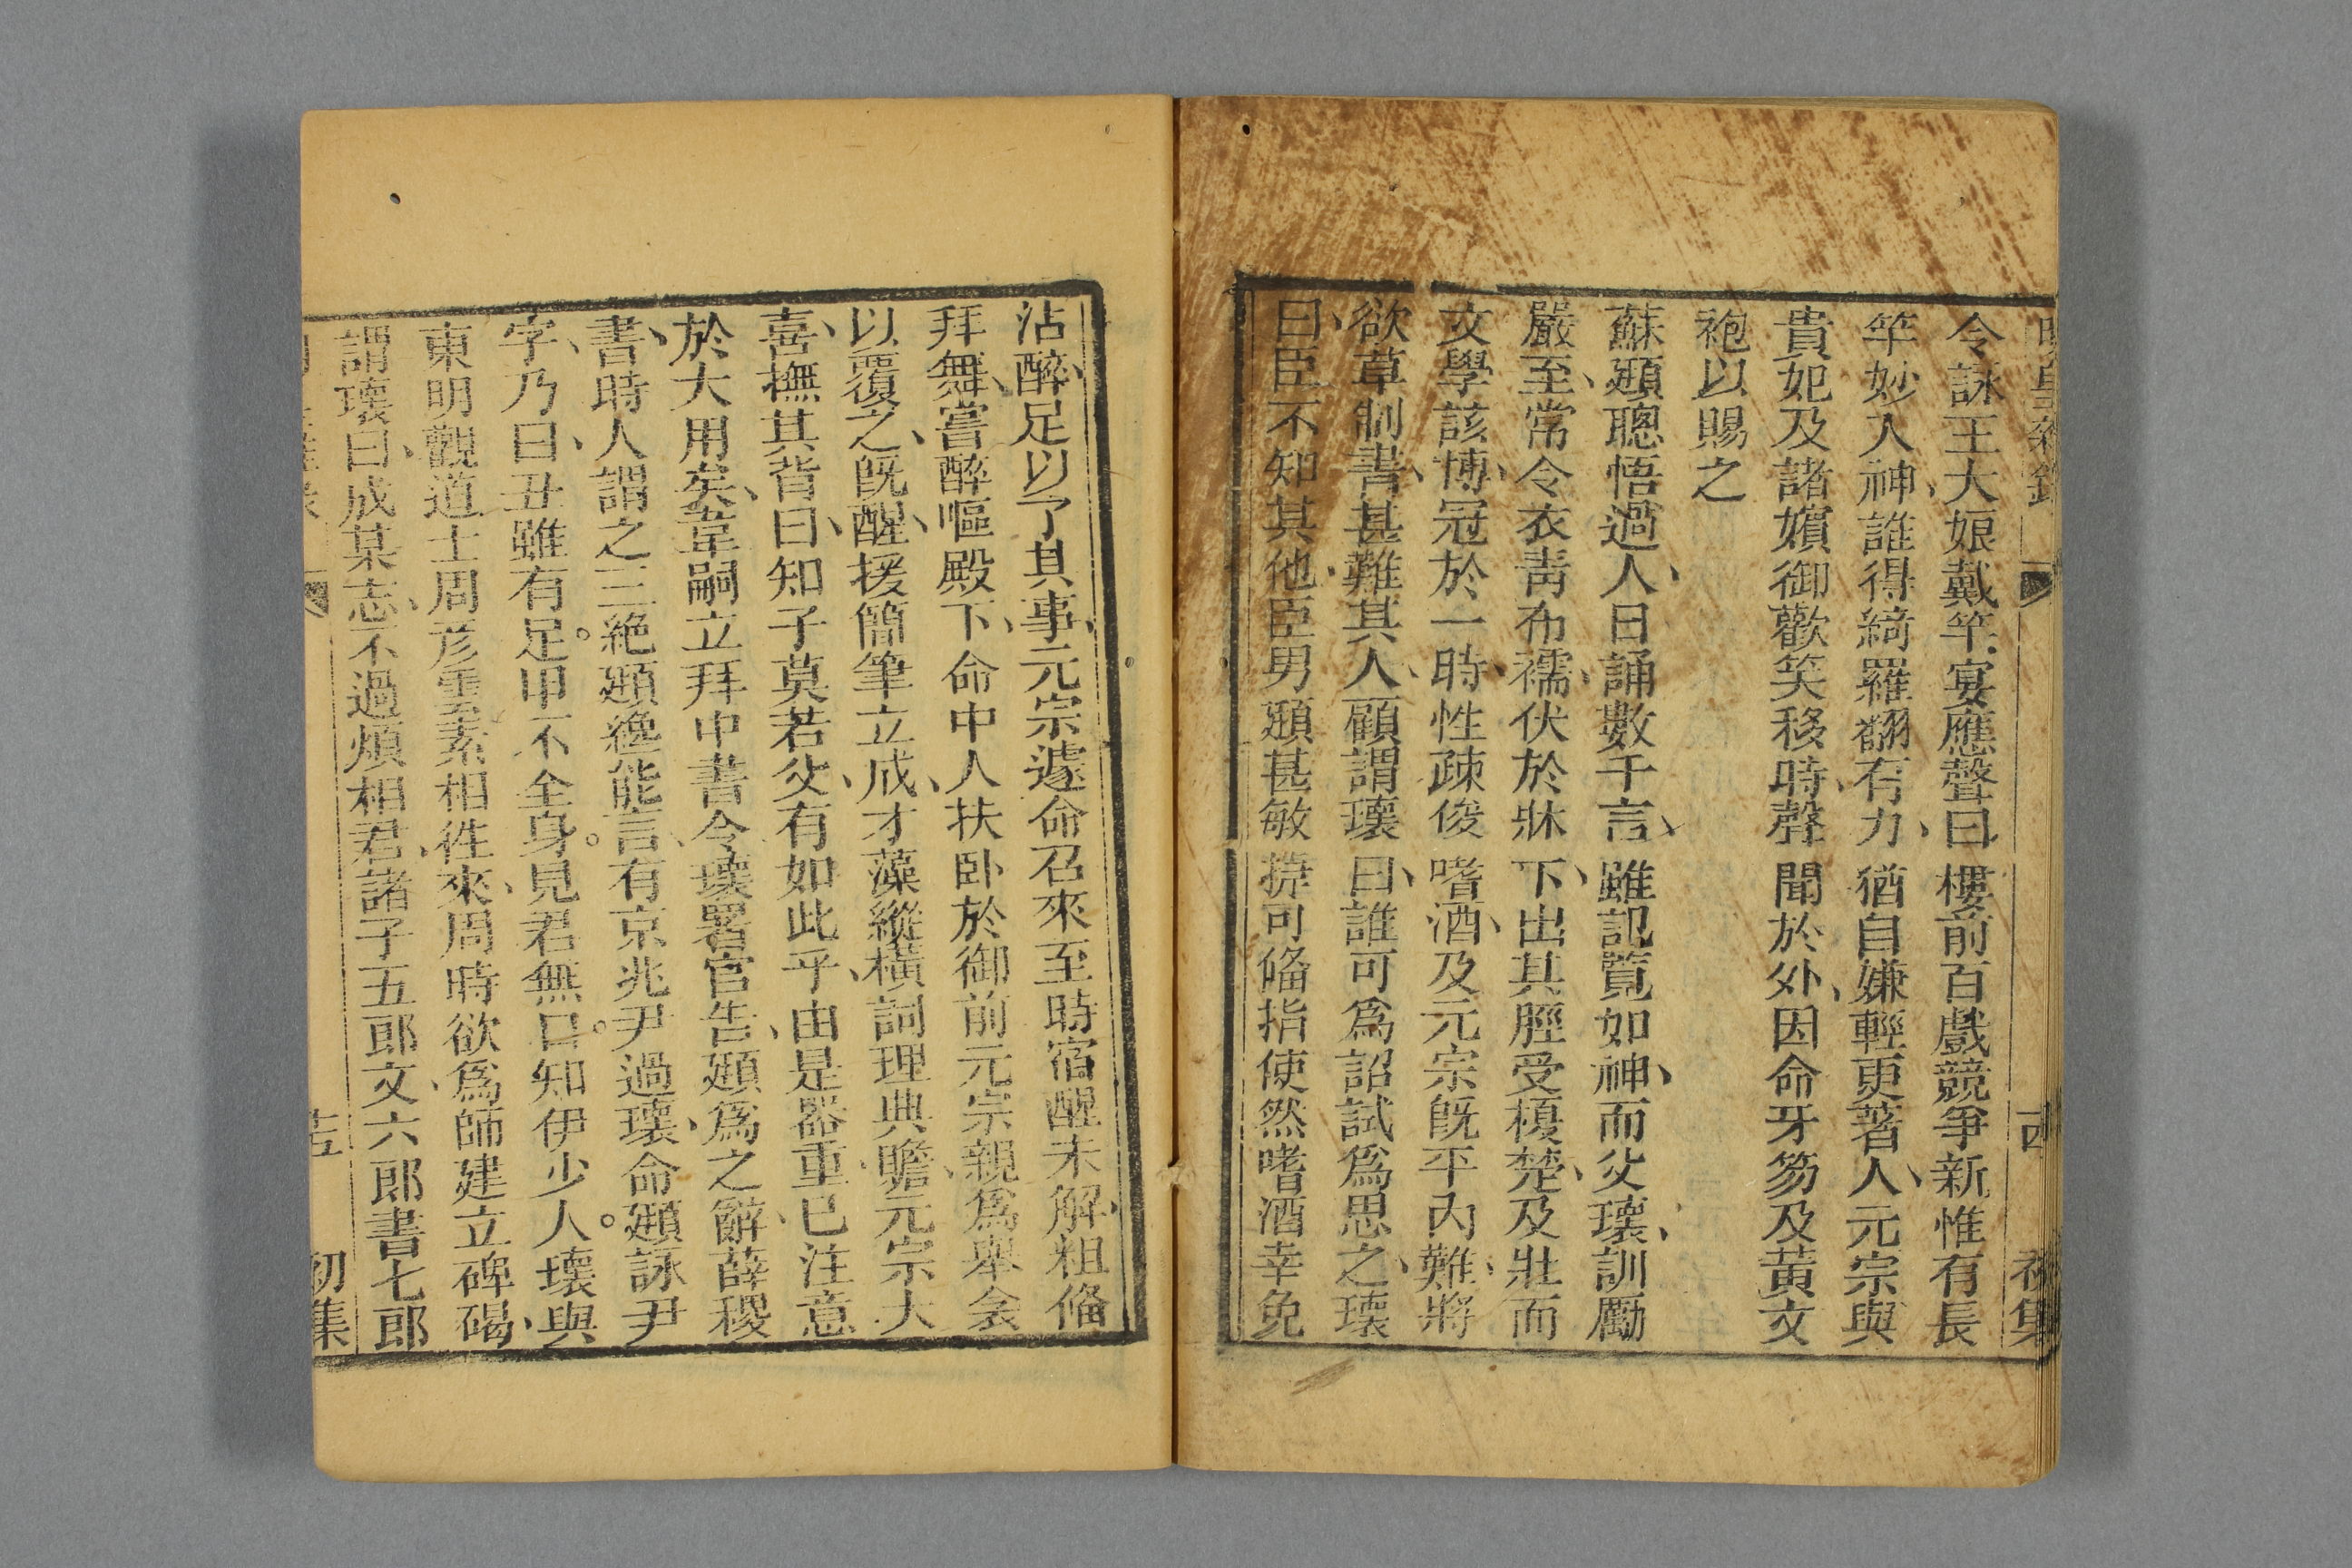 令詠王大娘戴竿宴應聲曰樓前百戲競爭新惟有長
竿妙入神誰得綺羅翻有力猶自嫌輕更著人元宗與
貴妃及諸嬪御歡笑移時聲聞於外因命牙笏及黃文
袍以賜之
蘇頲聰悟過人日誦數千言雖記覽如神而父瓌訓厲
嚴至常令衣青布襦伏於牀下出其脛受榎楚及壯而
文學該博冠於一時性疎俊嗜酒及元宗旣平內難將
欲草制書甚難其人顧謂瓌曰誰可爲詔試爲思之瓌
曰臣不知其他臣男頲甚敏捷可俻指使然嗜酒幸免
沾醉足以了其事元宗遽命召來至時宿酲未解粗俻
拜舞嘗醉嘔殿下命中人扶卧於御前元宗親爲舉衾
以覆之旣醒援簡筆立成才藻縱橫詞理典贍元宗大
喜撫其背曰知子莫若父有如此乎由是器重已注意
於大用矣韋嗣立拜中書令瓌署官告頲爲之辭薛稷
書時人謂之三絕頲纔能言有京兆尹過瓌命頲詠尹
字乃曰丑雖有足甲不全身見君無口知伊少人瓌與
東明觀道士周彥雲素相徃來周時欲爲師建立碑碣
謂瓌曰成某志不過煩相君諸子五郎文六郎書七郎
十五 初集